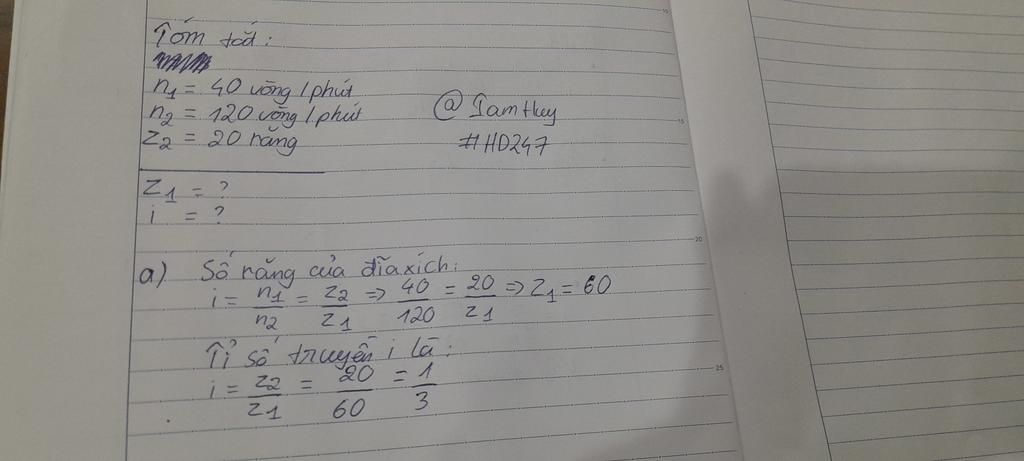 Tóm tắt:
n1 = 40 vòng/phút
n2 = 120 vòng/phút
@IamHuy
Z2 = 20 răng
#HD247
Z1 = ?
i = ?
a) Số răng của đĩa xích:
i = n1/n2 = Z2/Z1 => 40/120 = 20/Z1 => Z1 = 60
Tỉ số truyền i là:
i = Z2/Z1 = 20/60 = 1/3